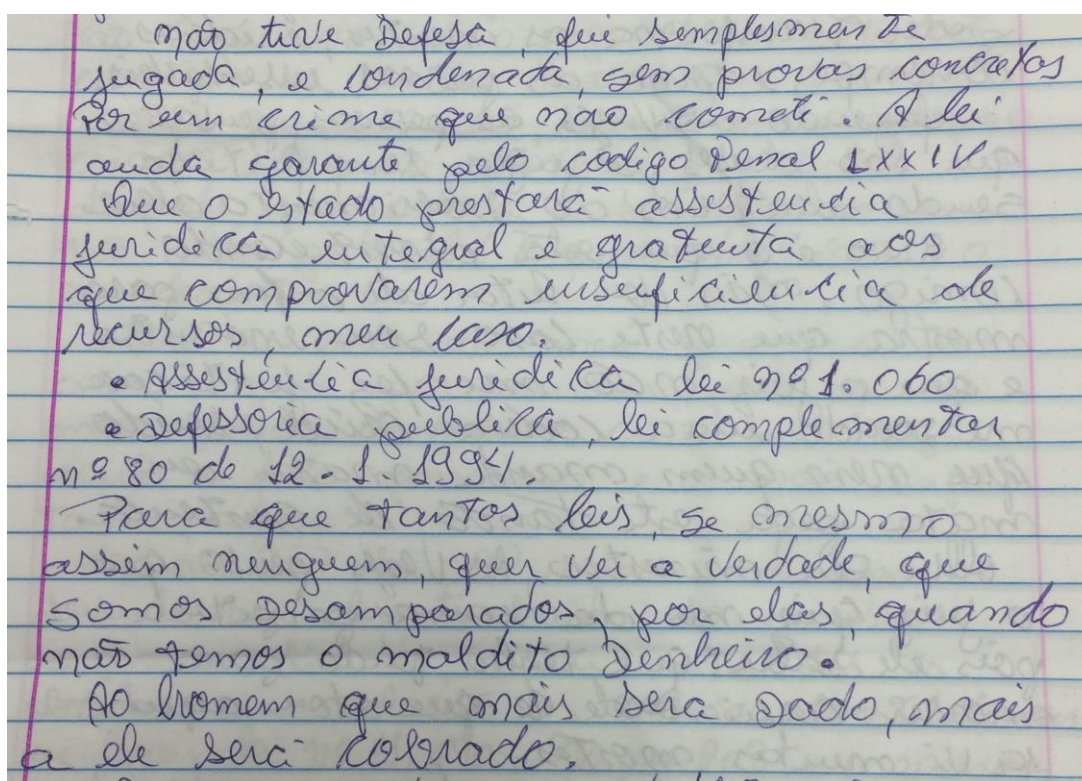 não tive Defesa, fui simplesmente
jugada, e condenada, sem provas concretas
Por um crime que não cometi. A lei
ainda garante pelo codigo Penal LXXIV
Que o estado prestará assistencia
juridica integral e gratuita aos
que comprovarem insuficiencia de
recursos, meu caso.
• Assistência juridica lei nº 1.060
• Defessoria publica, lei complementar
nº 80 de 12.1.1994.
Para que tantos leis, se mesmo
assim ninguem, quer ver a verdade, que
somos Desamparados, por elas, quando
não temos o maldito Dinheiro.
Ao homem que mais sera Dado, mais
a ele será cobrado.